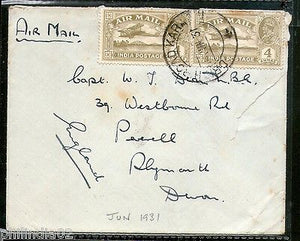 AIR MAIL
INDIA POSTAGE
AIR MAIL
INDIA POSTAGE 4
AIR MAIL
Capt. W. J.
39, Westbourne Rd
Plymouth
Devon.
England
JUN 1931
philindia02